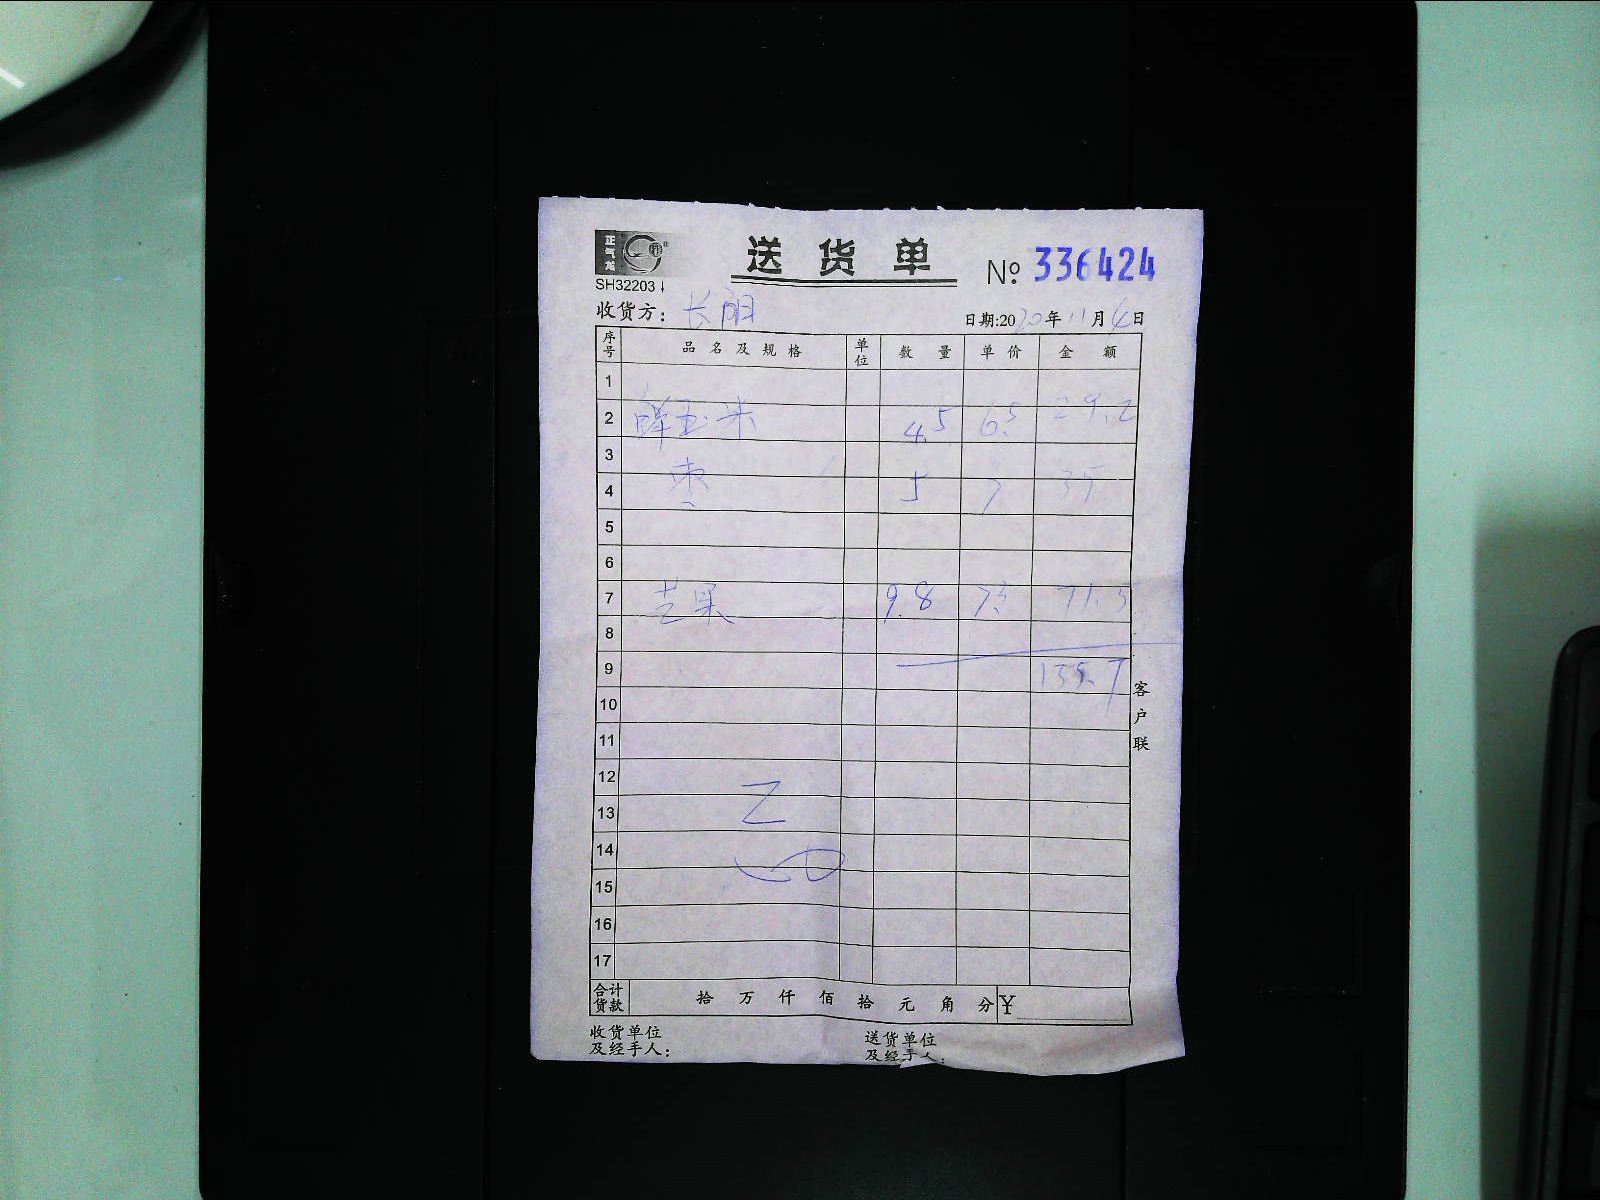 正气龙
送货单
№ 336424
SH32203
收货方：长阳
日期:2020年11月4日
序号 品名及规格 单位 数量 单价 金额
1
2 鲜玉米 4.5 6.5 29.2
3
4 枣 5 7 35
5
6
7 芒果 9.8 7.3 71.5
8
9 135.7
10
11
12
13
14
15
16
17
客户联
合计货款 拾 万 仟 佰 拾 元 角 分 ¥
收货单位及经手人：
送货单位及经手人：